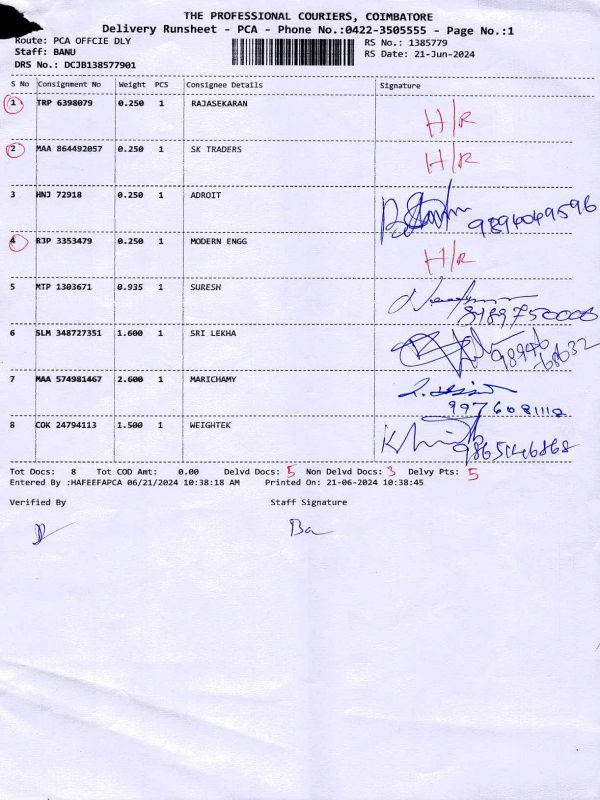 THE PROFESSIONAL COURIERS, COIMBATORE
Delivery Runsheet - PCA - Phone No.:0422-3505555 - Page No.:1
Route: PCA OFFCIE DLY RS No.: 1385779
Staff: BANU RS Date: 21-Jun-2024
DRS No.: DCJB138577901
S No Consignment No Weight PCS Consignee Details Signature
1 TRP 6398079 0.250 1 RAJASEKARAN H/R
2 MAA 864492057 0.250 1 SK TRADERS H/R
3 HNJ 72918 0.250 1 ADROIT 9894049596
4 RJP 3353479 0.250 1 MODERN ENGG H/R
5 MTP 1303671 0.935 1 SURESH
6 SLM 348727351 1.600 1 SRI LEKHA
7 MAA 574981467 2.600 1 MARICHAMY
9976081110
8 COK 24794113 1.500 1 WEIGHTEK
9865146868
Tot Docs: 8 Tot COD Amt: 0.00 Delvd Docs: 5 Non Delvd Docs: 3 Delvy Pts: 5
Entered By :HAFEEFAPCA 06/21/2024 10:38:18 AM Printed On: 21-06-2024 10:38:45
Verified By Staff Signature
Ba